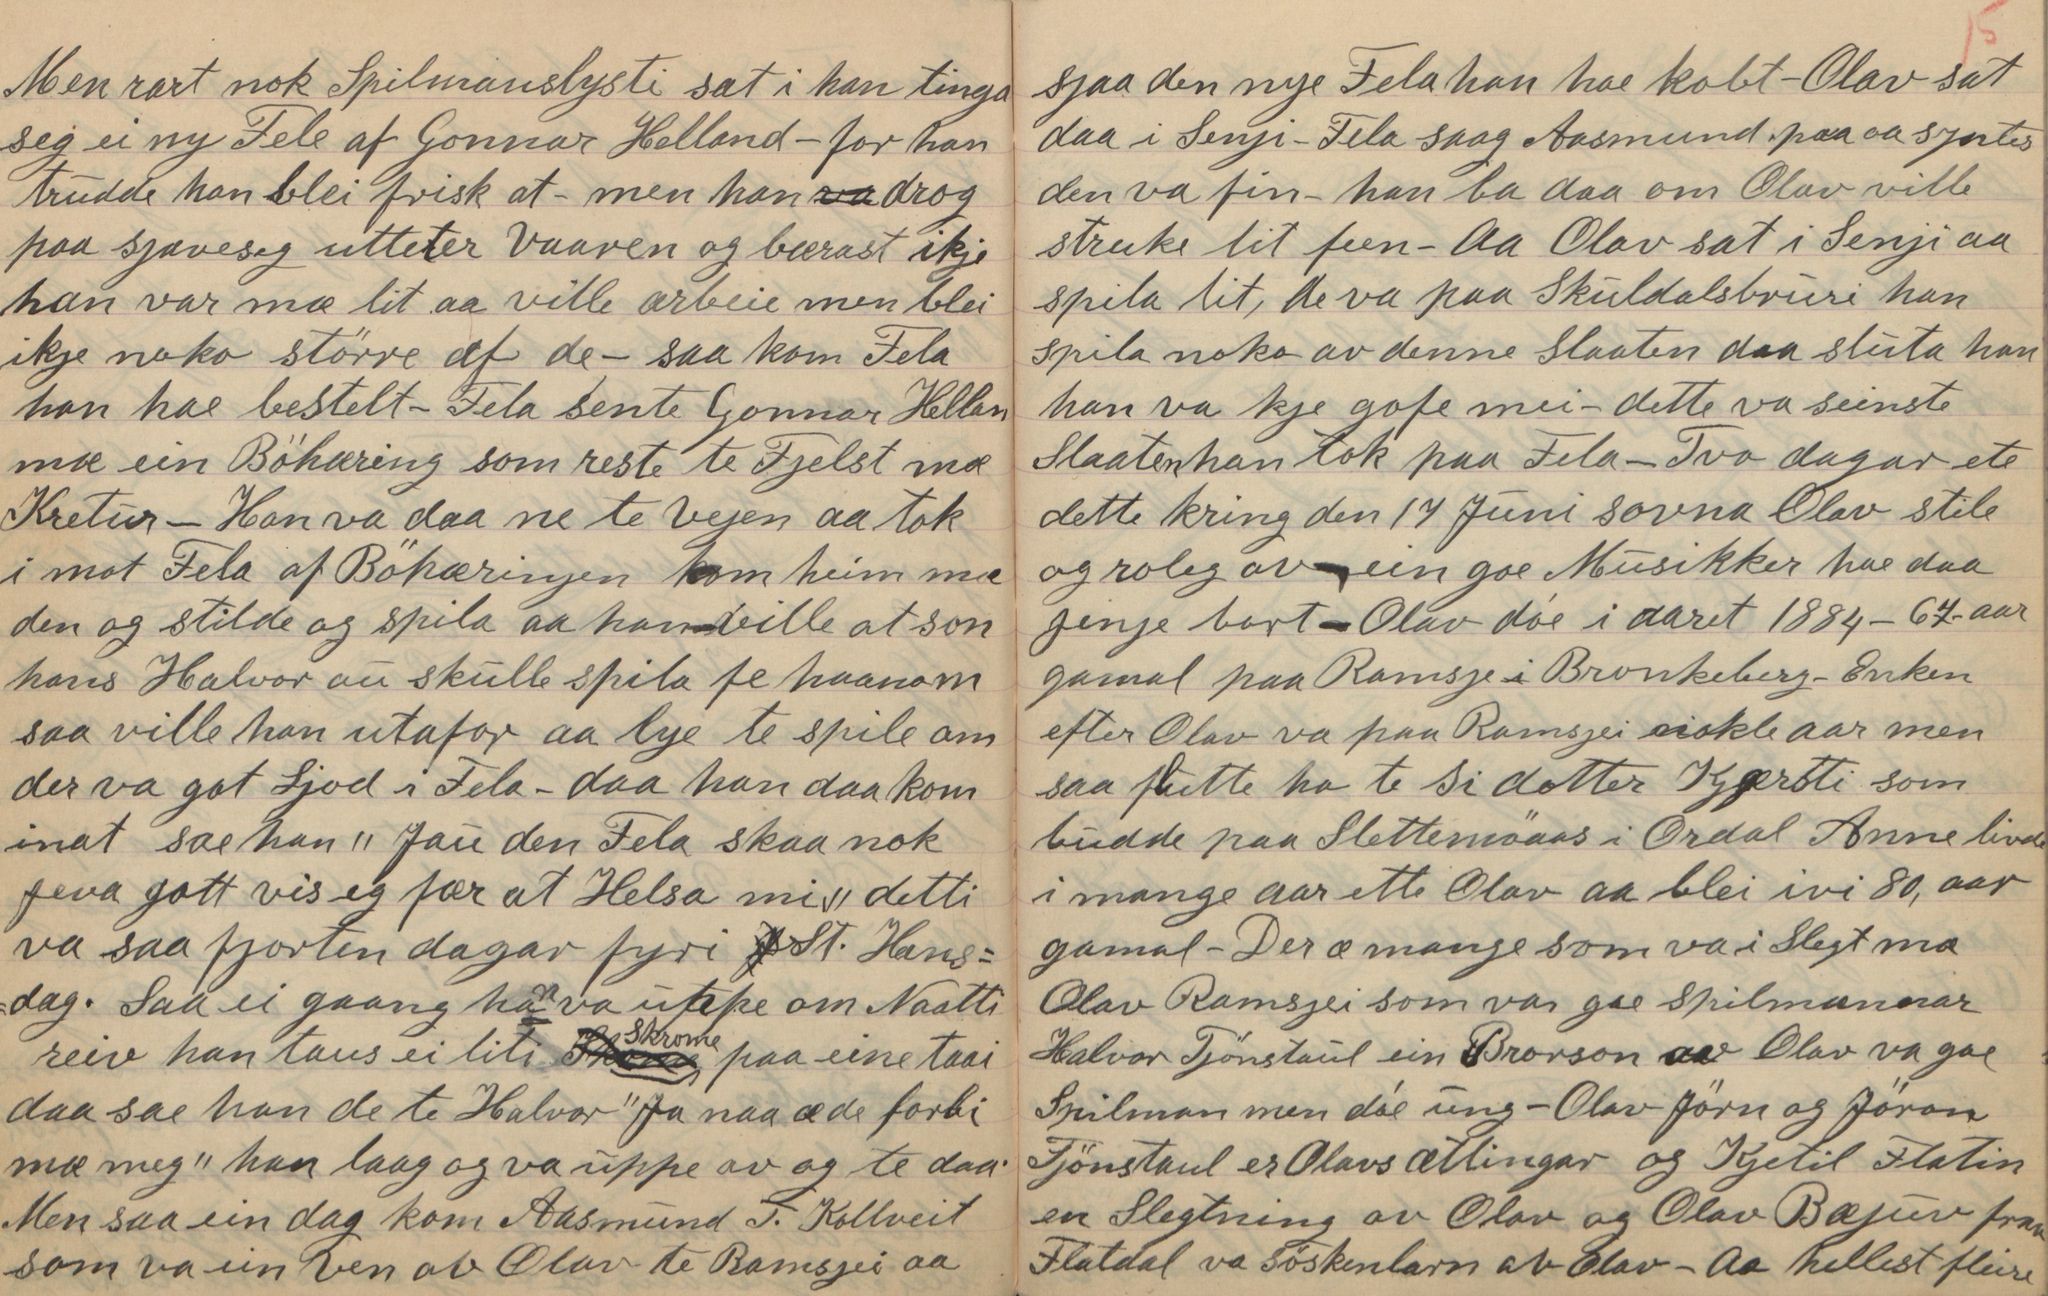 Men rart nok Spilmanslysti sat i han tinga
seg ei ny Fele af Gonnar Helland – for han
trudde han blei frisk at – men han va drog
paa sjaveseg utteter Vaaren og bærast ikje
han var mæ lit aa ville arbeie men blei
ikje noko större af de – saa kom Fela
han hae bestelt – Fela sente Gonnar Hellan
mæ ein Böhæring som reste te Fjelst mæ
Kretur – Han va daa ne te Vejen aa tok
i mot Fela af Böhæringen kom heim mæ
den og stilde og spila aa han ville at son
hans Halvor au skulle spila fe haanom
saa ville han utafor aa lye te spile om
der va got Ljod i Fela – daa han daa kom
inat sae han " Jau den Fela skaa nok
jeva gott vis eg fær at Helsa mi" detti
va saa fjorten dagar fyri St. Hans=
=dag. Saa ei gaang han va uppe om Naatti
reiv han taus ei liti Skrome paa eine taai
daa sae han de te Halvor "Ja naa æ de forbi
mæ meg" han laag og va uppe av og te daa.
Men saa ein dag kom Aasmund T. Kollveit
som va ein Ven av Olav te Ramsjei aa
15
sjaa den nye Fela han hae kobt – Olav sat
daa i Senji – Fela saag Aasmund paa aa syntes
den va fin – han ba daa om Olav ville
struke lit feen – Aa Olav sat i Senji aa
spila lit, de va paa Skuldalsbruri han
spila noko av denne Slaaten daa sluta han
han va kje gofe mei – dette va seinste
Slaaten han tok paa Fela – Tvo dagar ete
dette kring den 17 Juni sovna Olav stile
og roleg av – ein goe Musikker hae daa
jenje bort – Olav döe i aaret 1884 – 67 aar
gamal paa Ramsje i Bronkeberg – Enken
efter Olav va paa Ramsjei nokle aar men
saa flutte ho te Si dotter Kjærsti som
budde paa Slettemöaas i Ordal Anne livde
i mange aar ette Olav aa blei ivi 80, aar
gamal – Der æ mange som va i Slegt mæ
Olav Ramsjei som var goe Spilmannar
Halvor Tjönstaul ein Brorson av Olav va goe
Spilman men döe ung – Olav Jörn og Jöron
Tjönstaul er Olavs ætlingar og Kjetil Flatin
en Slegtning av Olav og Olav Bæjuv fraa
Flatdal va söskenbarn av Olav – Aa hellest fleire